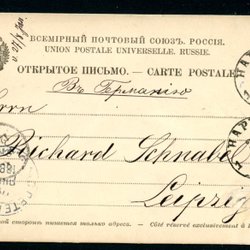 ВСЕМІРНЫЙ ПОЧТОВЫЙ СОЮЗЪ. РОССІЯ.
UNION POSTALE UNIVERSELLE. RUSSIE.
ОТКРЫТОЕ ПИСЬМО. — CARTE POSTALE
Въ Германію
Herrn
Richard Schnabel
Leipzig
этой сторонѣ пишется только адресъ. — Côté réservé exclusivement à